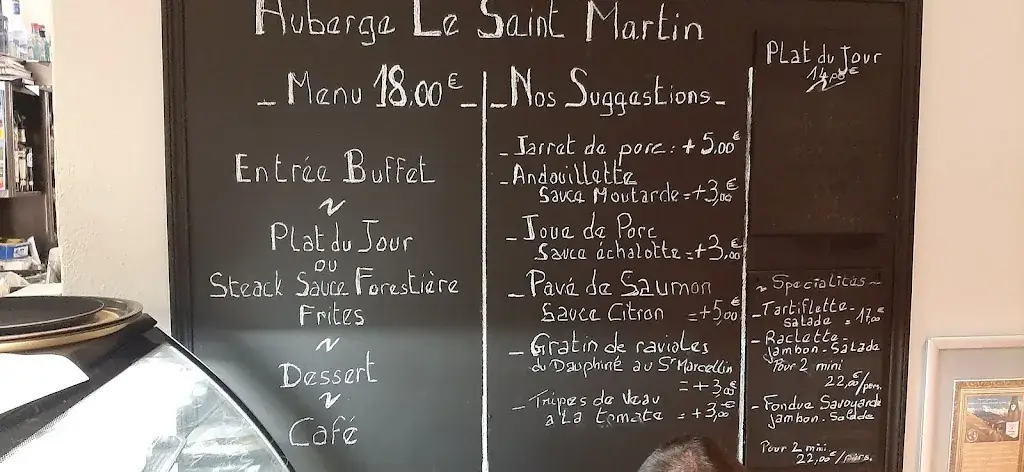 Auberge Le Saint Martin
- Menu 18.00€ -
Entrée Buffet
~
Plat du Jour
ou
Steack Sauce Forestière
Frites
~
Dessert
~
Café
- Nos Suggestions -
- Jarret de porc : + 5,00€
- Andouillette
Sauce Moutarde = + 3,00€
- Joue de Porc
Sauce échalotte = + 3,00€
- Pavé de Saumon
Sauce Citron = + 5,00€
- Gratin de ravioles
du Dauphiné au St Marcellin
= + 3,00€
- Tripes de Veau
à La tomate = + 3,00€
Plat du Jour
14,00€
~ Specialités ~
- Tartiflette -
salade = 17,00€
- Raclette -
jambon - Salade
Pour 2 mini
22,00€/pers.
- Fondue Savoyarde
jambon - Salade
Pour 2 mini
22,00€/pers.